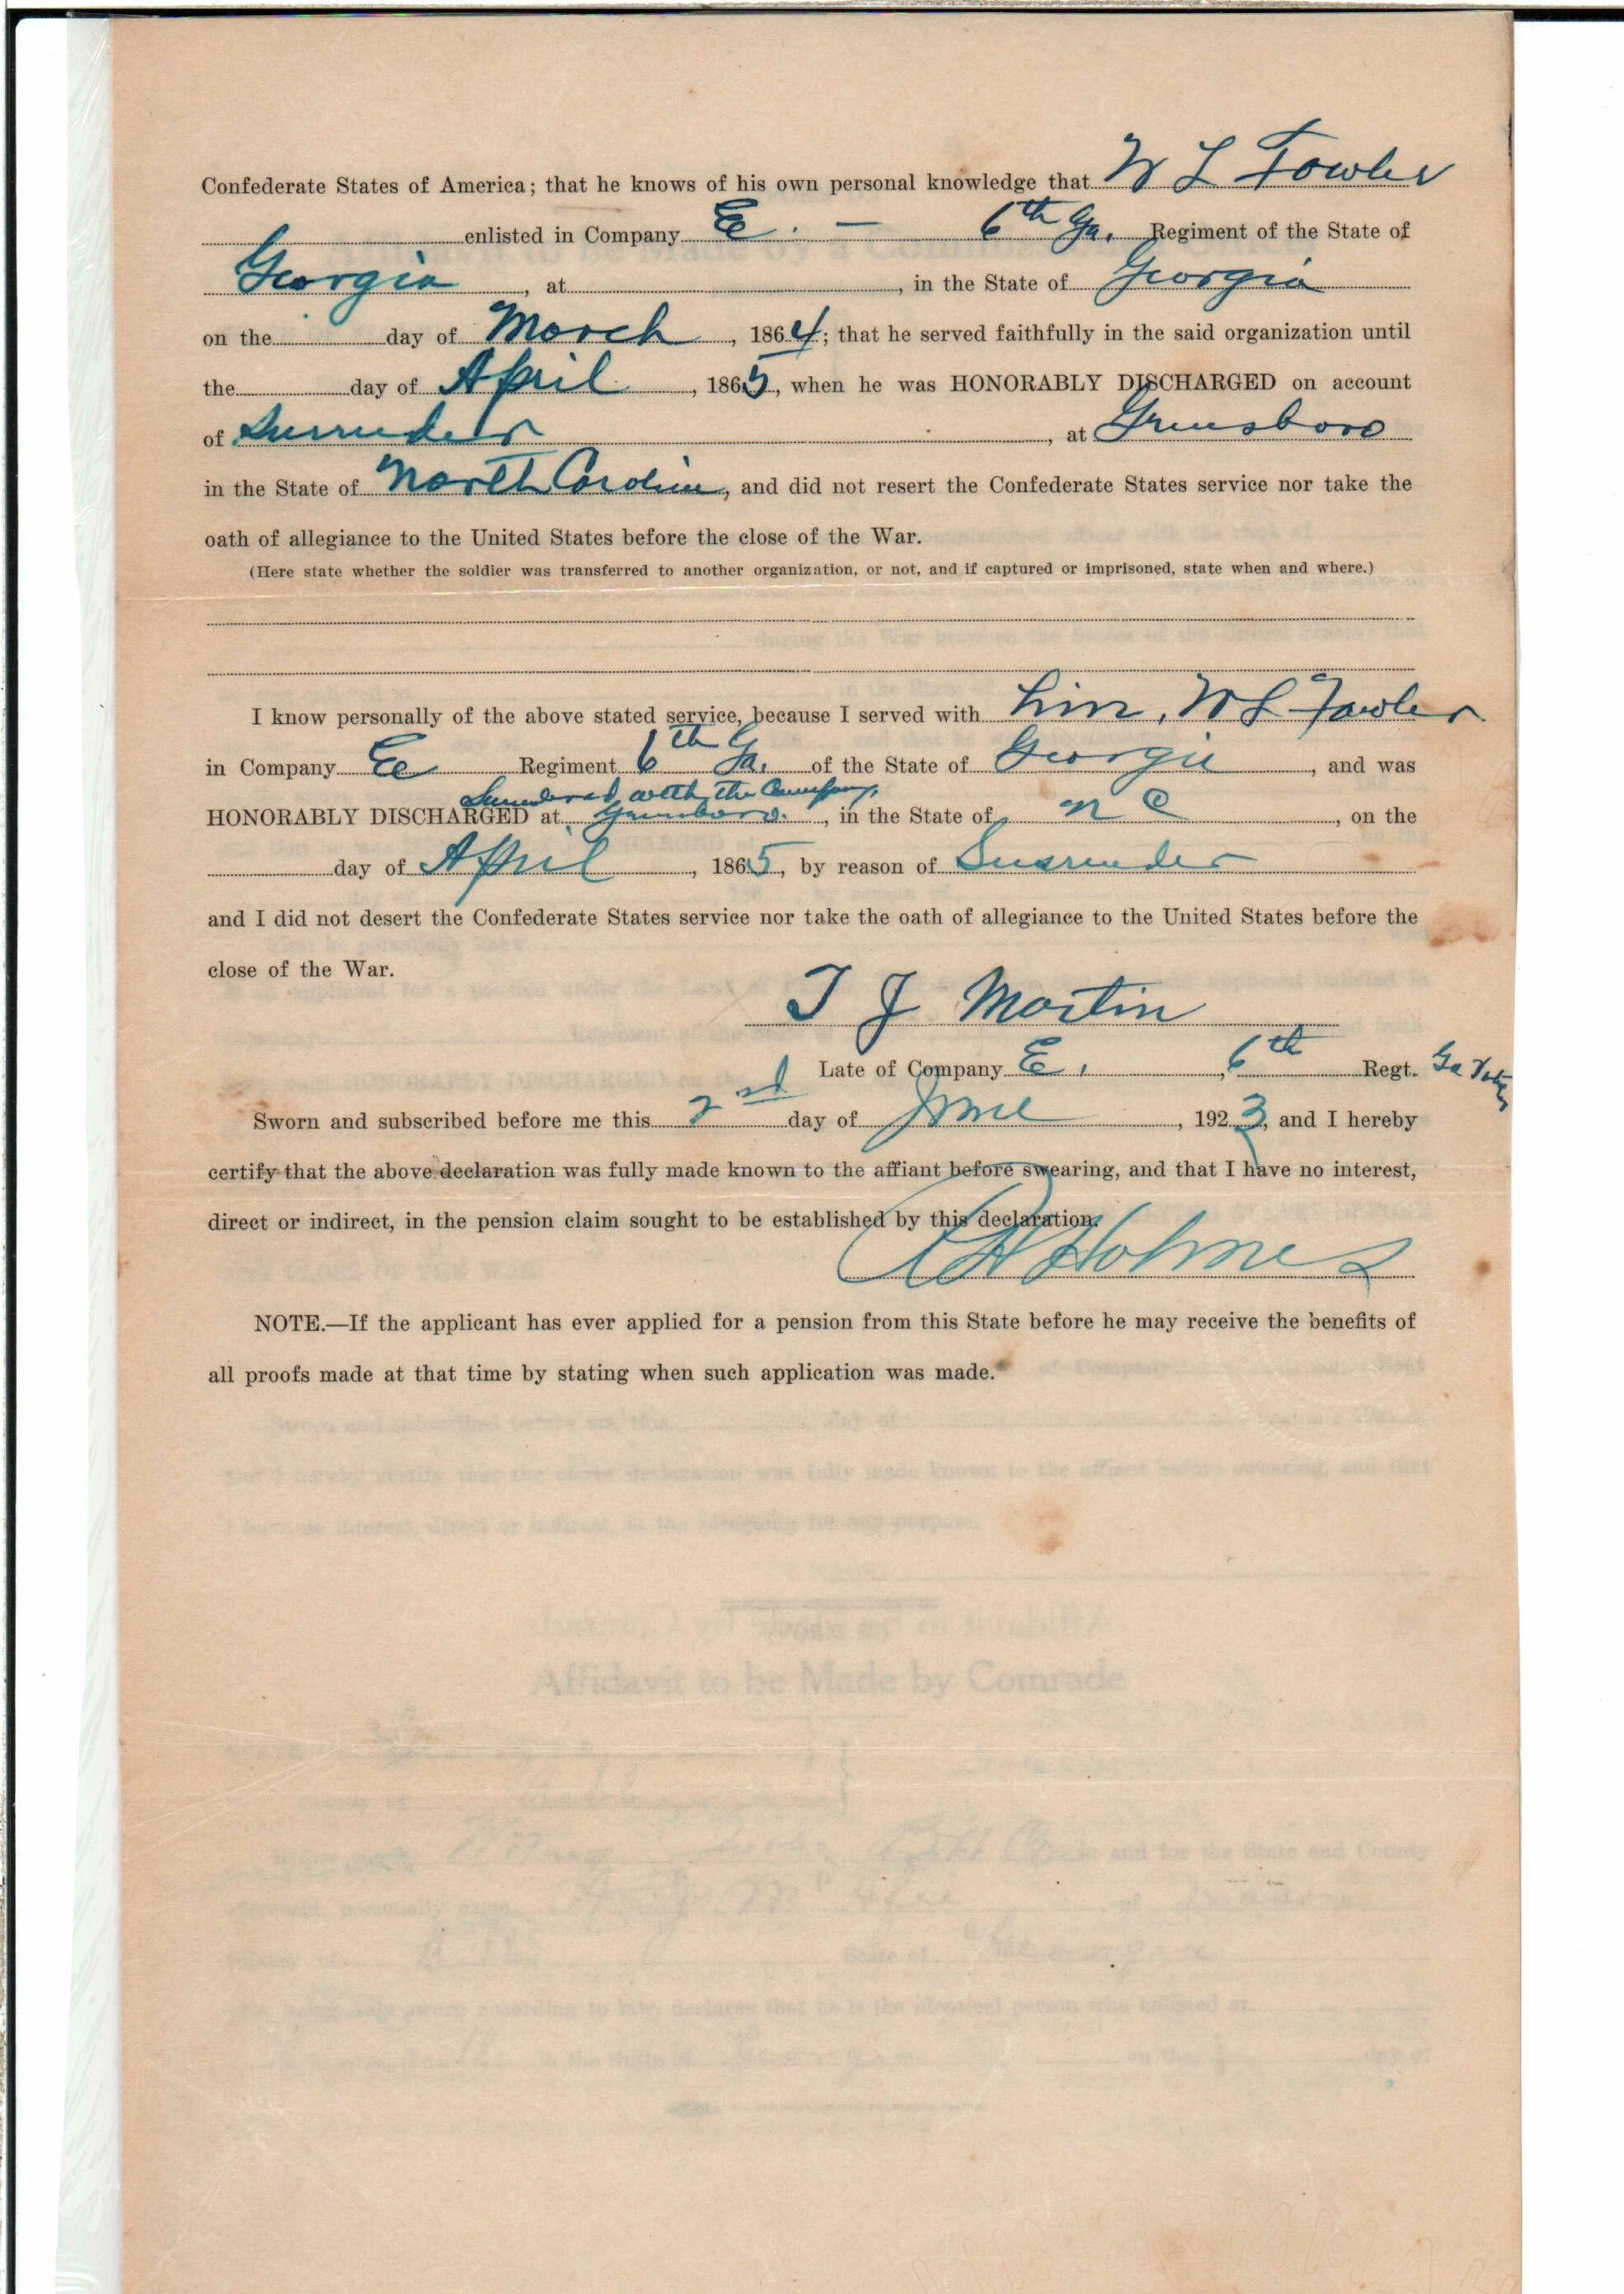 Confederate States of America; that he knows of his own personal knowledge that W L Fowler
enlisted in Company E. — 6th Ga. Regiment of the State of
Georgia, at , in the State of Georgia
on the day of March, 1864; that he served faithfully in the said organization until
the day of April, 1865, when he was HONORABLY DISCHARGED on account
of Surrender, at Greensboro
in the State of North Carolina, and did not resert the Confederate States service nor take the
oath of allegiance to the United States before the close of the War.
(Here state whether the soldier was transferred to another organization, or not, and if captured or imprisoned, state when and where.)
I know personally of the above stated service, because I served with him, W L Fowler
in Company E Regiment 6th Ga. of the State of Georgia, and was
Surrendered with the Company,
HONORABLY DISCHARGED at Greensboro., in the State of N C, on the
day of April, 1865, by reason of Surrender
and I did not desert the Confederate States service nor take the oath of allegiance to the United States before the
close of the War.
T J Martin
Late of Company E, 6th Regt. Ga
Sworn and subscribed before me this 2nd day of June, 1923, and I hereby
certify that the above declaration was fully made known to the affiant before swearing, and that I have no interest,
direct or indirect, in the pension claim sought to be established by this declaration.
Holmes
NOTE.—If the applicant has ever applied for a pension from this State before he may receive the benefits of
all proofs made at that time by stating when such application was made.
Affidavit to be Made by Comrade